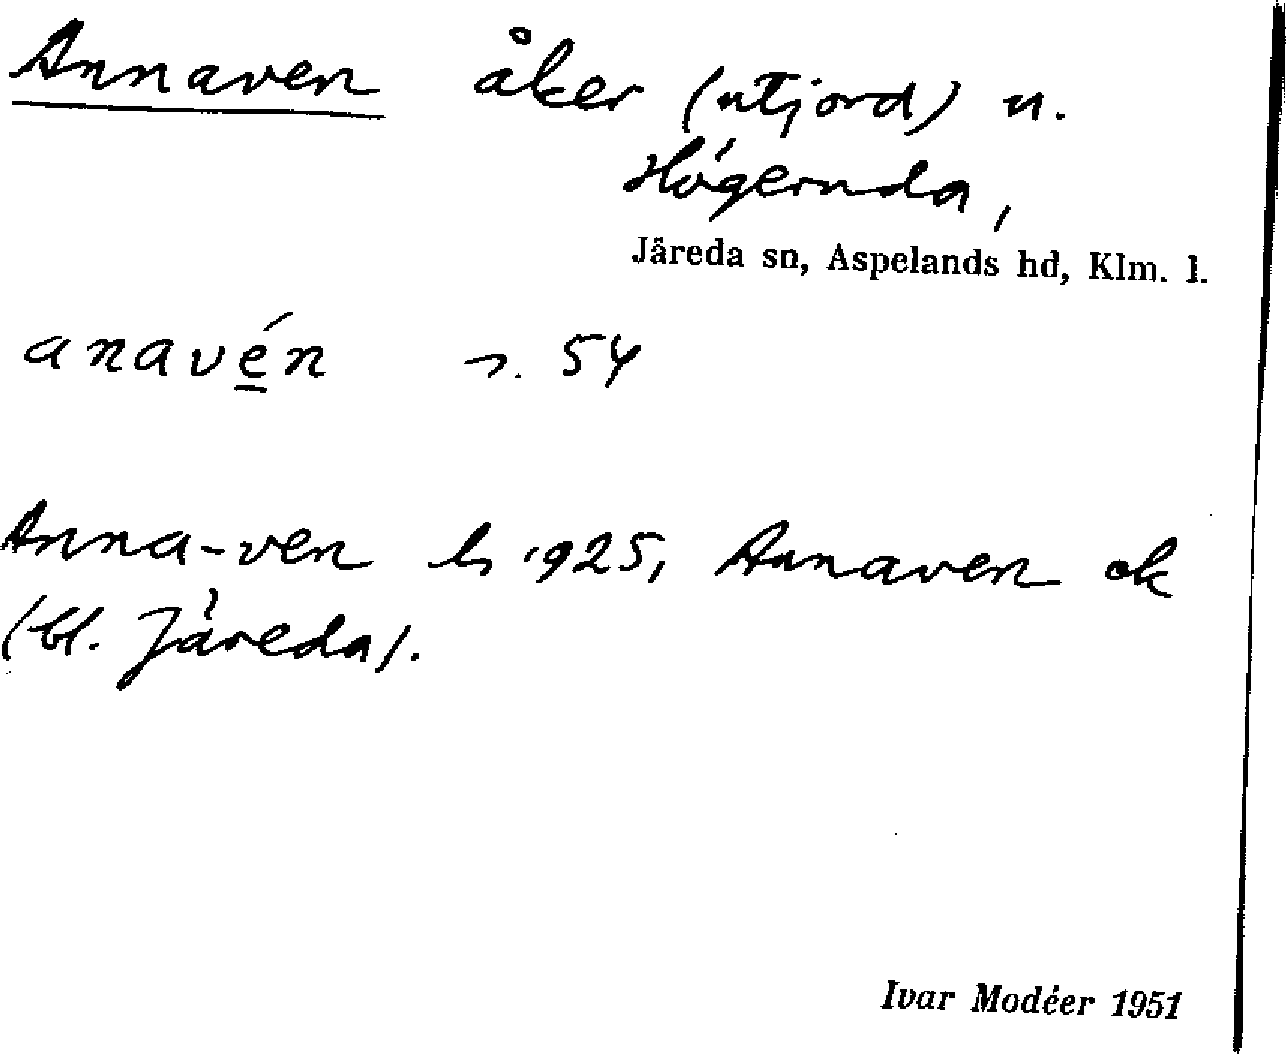 Annaven åker (utjord) u.
Högernda,
Järeda sn, Aspelands hd, Klm. l.
anavén s. 54
Anna-ven hs 1925, Annaven ek
(bl. Järeda).
Ivar Modéer 1951